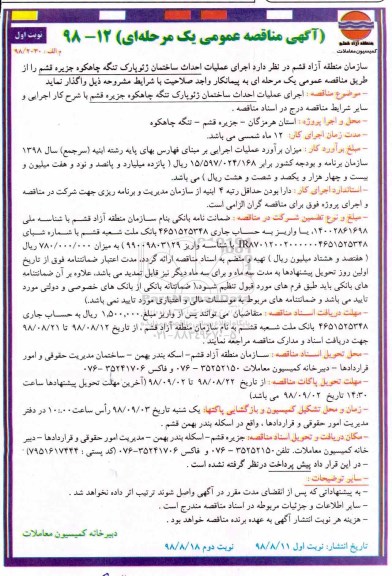 (آگهی مناقصه عمومی یک مرحله‌ای) ۱۲–۹۸
نوبت اول
م الف: ۹۸/۲۰۳۰
منطقه آزاد قشم
کمیسیون معاملات
سازمان منطقه آزاد قشم در نظر دارد اجرای عملیات احداث ساختمان ژئوپارک تنگه چاهکوه جزیره قشم را از
طریق مناقصه عمومی یک مرحله ای به پیمانکار واجد صلاحیت با شرایط مشروحه ذیل واگذار نماید
– موضوع مناقصه : اجرای عملیات احداث ساختمان ژئوپارک تنگه چاهکوه جزیره قشم با شرح کار اجرایی و
سایر شرایط مناقصه درج در اسناد مناقصه .
– محل و اجرا پروژه : استان هرمزگان – جزیره قشم – تنگه چاهکوه
– مدت زمان اجرای کار: ۱۲ ماه شمسی می باشد.
– مبلغ برآورد کار : میزان برآورد عملیات اجرایی بر مبنای فهارس بهای پایه رشته ابنیه (سرجمع) سال ۱۳۹۸
سازمان برنامه و بودجه کشور برابر ۱۵/۵۹۷/۰۲۴/۱۶۸ ریال ( پانزده میلیارد و پانصد و نود و هفت میلیون و
بیست و چهار هزار و یکصد و شصت و هشت ریال ) می باشد.
– استاندارد اجرای کار : دارا بودن حداقل رتبه ۴ ابنیه از سازمان مدیریت و برنامه ریزی جهت شرکت در مناقصه
و اجرای پروژه فوق برای مناقصه گران الزامی است.
– مبلغ و نوع تضمین شرکت در مناقصه : ضمانت نامه بانکی بنام سازمان منطقه آزاد قشم با شناسه ملی
۱۴۰۰۲۸۶۱۶۹۸، یا واریز به حساب جاری ۴۶۵۱۵۲۵۳۴۸ بانک ملت شعبه قشم با شماره شبای
با شناسه واریز ۹۹۰۰۹۸۳۱۲۹ به میزان ۷۸۰/۰۰۰/۰۰۰ ریال
( هفتصد و هشتاد میلیون ریال ) تهیه و منضم به اسناد مناقصه ارائه گردد، مدت اعتبار ضمانتنامه فوق از تاریخ
اولین روز تحویل پیشنهادها به مدت سه ماه و برای سه ماه دیگر نیز قابل تمدید می باشد، علاوه بر آن ضمانتنامه
های بانکی باید طبق فرم های مورد قبول تنظیم شود.( ضمانتنامه بانکی از بانک های خصوصی و دولتی مورد
تایید می باشد و ضمانتنامه های مربوط به موسسات مالی و اعتباری مورد تایید نمی باشد).
– مهلت دریافت اسناد مناقصه : متقاضیان می توانند پس از واریز مبلغ ۱,۵۰۰,۰۰۰ ریال به حساب جاری
۴۶۵۱۵۲۵۳۴۸ بانک ملت شعبه قشم به نام سازمان منطقه آزاد قشم ، از تاریخ ۹۸/۰۸/۱۲ تا ۹۸/۰۸/۲۱
جهت دریافت اسناد و مدارک مناقصه مراجعه نمایند.
– محل تحویل اسناد مناقصه : سازمان منطقه آزاد قشم– اسکله بندر بهمن – ساختمان مدیریت حقوقی و امور
قراردادها – دبیرخانه کمیسیون معاملات ۳۵۲۵۲۱۵۰ – ۰۷۶ و فاکس ۳۵۲۴۱۷۰۶ –۰۷۶
– مهلت تحویل پاکات مناقصه : از تاریخ ۹۸/۰۸/۲۲ تا ۹۸/۰۹/۰۲ (آخرین مهلت تحویل پیشنهادها ساعت
۱۴:۳۰ تاریخ ۹۸/۰۹/۰۲ می باشد)
– زمان و محل تشکیل کمیسیون و بازگشایی پاکتها: یک شنبه تاریخ ۹۸/۰۹/۰۳ رأس ساعت ۱۰:۰۰ در دفتر
مدیریت امور حقوقی و قراردادها ، واقع در اسکله بندر بهمن قشم .
– مکان دریافت و تحویل اسناد مناقصه: جزیره قشم– اسکله بندر بهمن – مدیریت امور حقوقی و قراردادها – دبیر
خانه کمیسیون معاملات. تلفن ۳۵۲۵۲۱۵۰ – ۰۷۶ و فاکس ۳۵۲۴۱۷۰۶-۰۷۶ (کد پستی : ۷۹۵۱۶۱۷۴۴۲)
– در این قرار داد پیش پرداخت درنظر گرفته نشده است .
– سایر توضیحات :
– به پیشنهاداتی که پس از انقضای مدت مقرر در آگهی واصل شوند ترتیب اثر داده نخواهد شد .
– سایر اطلاعات و جزئیات مربوطه در اسناد مناقصه مندرج است .
– هزینه هر نوبت انتشار آگهی به عهده برنده مناقصه خواهد بود .
دبیرخانه کمیسیون معاملات
تاریخ انتشار: نوبت اول ۹۸/۸/۱۱ نوبت دوم ۹۸/۸/۱۸